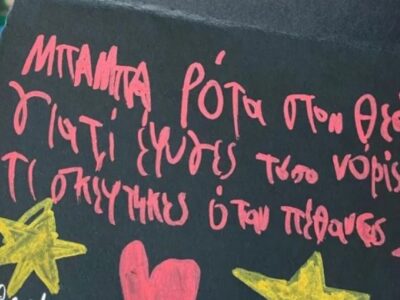 ΜΠΑΜΠΑ ρότα στον θεό
γιατί έφυγες τοσο νόρίς
τι σκευτηκες όταν πέθανες